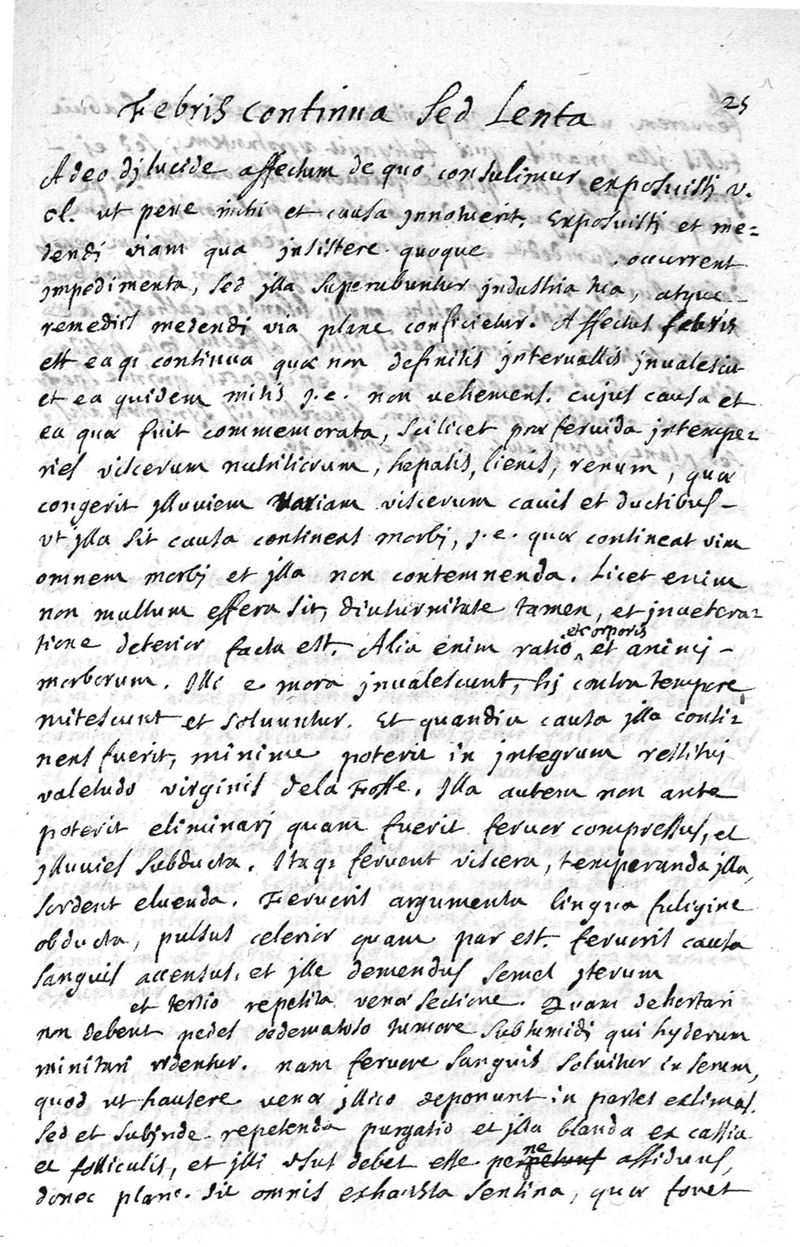 25
Febris continua sed lenta
Adeo djlucide affectum de quo consulimur exposuisti v.
cl. ut pene mihi et causa jnnotuerit. Exposuisti et me=
dendi viam qua jnsistere quoque occurrent
jmpedimenta, sed jlla superabuntur jndustria tua, atque
remediis medendi via plane conficietur. Affectus febris
est eaqȝ continua quæ non definitis jntervallis jnvalescit
et ea quidem mitis j.e. non vehemens. cujus causa et
ea quæ fuit commemorata, scilicet præfervida jntempe=
ries viscerum nutritiorum, hepatis, lienis, renum, quæ
congerit jlluviem variam viscerum cavis et ductibus –
ut jlla sit causa continens morbj, j.e. quæ contineat vim
omnem morbj et jlla non contemnenda. Licet enim
non multum effera sit, diuturnitate tamen, et jnvetera=
tione deterior facta est. Alia enim ratio et corporis et animj –
morborum. Illi e mora jnvalescunt, hj contra tempore
mitescunt et solvuntur. Et quandiu causa jlla conti=
nens fuerit, minime poterit in jntegrum restituj
valetudo virginis dela Fosse. Illa autem non ante
poterit eliminarj quam fuerit fervor compressus, et
jlluvies subducta. Itaqȝ fervent viscera, temperanda jlla,
sordent eluenda. Fervoris argumenta lingua fuligine
obducta, pulsus celerior quam par est. fervoris causa
sanguis accensus, et jlle demendus semel jterum
et tertio repetita venæ sectione. Quam dehortari
non debent pedes œdematoso tumore subtumidi qui hyderum
minitari videntur. nam fervore sanguis solvitur in serum,
quod ut hausere venæ jllico deponunt in partes extimas.
Sed et subjnde repetenda purgatio et jlla blanda ex cassia
et folliculis, et jlli usus debet esse pene assiduus,
donec plane sit omnis exhausta sentina, quæ fovet